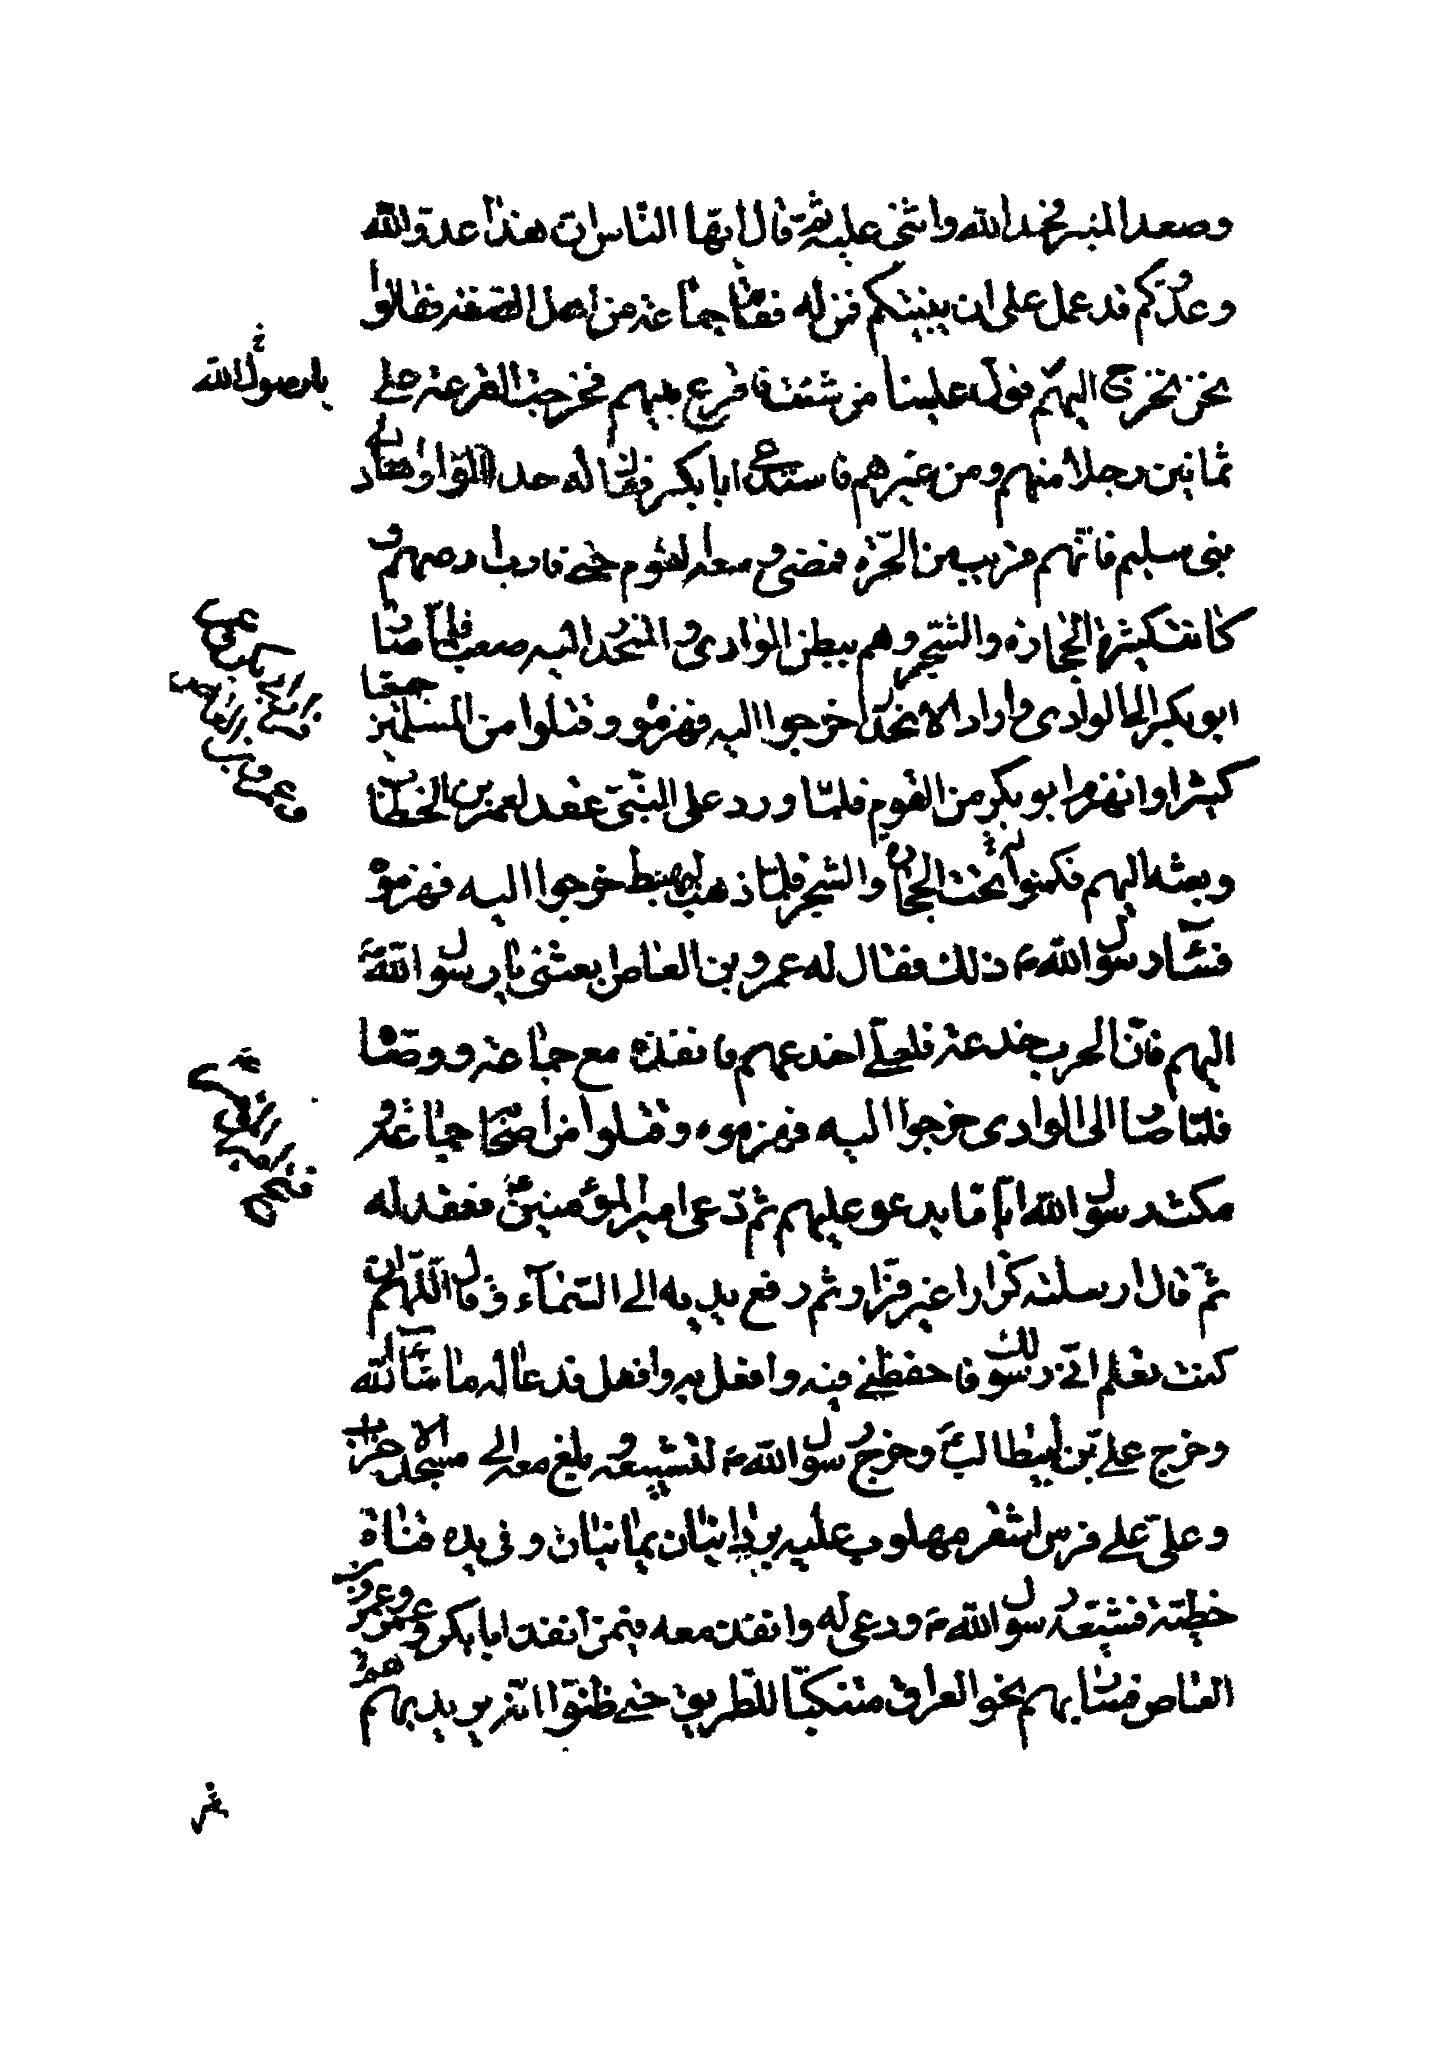 وصعد المنبر فحمد الله واثنى عليه ثم قال ايها الناس ان هذا عدو الله
وعدوكم قد عمل على ان يبيتكم فمن له فقام جماعة من اهل الصفة وقالوا
نحن نخرج اليهم فول علينا من شئت فاقرع بينهم فخرجت القرعة على
يا رسول الله
ثمانين رجلا منهم ومن غيرهم فاستدعى ابا بكر فقال له خذ اللوا وامض الى
بنى سليم فانهم قريب من الحرة فمضى ومعه القوم حتى قارب ارضهم و
كانت كثيرة الحجارة والشجر وهم ببطن الوادى والمنحدر اليه صعب فلما صار
ابو بكر الى الوادى واراد الانحدار خرجوا اليه فهزموه وقتلوا من المسلمين جمعا
كثيرا وانهزم ابو بكر من القوم فلما ورد على النبي عقد لعمر بن الخطاب
وبعثه اليهم فكمنوا له تحت الحجارة والشجر فلما ذهب ليهبط خرجوا اليه فهزموه
فساء رسول الله م ذلك فقال له عمرو بن العاص ابعثنى يا رسول الله
اليهم فان الحرب خدعة فلعلي اخدعهم فانفذه مع جماعة ووصاه
فلما صار الى الوادى خرجوا اليه فهزموه وقتلوا من اصحابه جماعة و
مكث رسول الله اياما يدعو عليهم ثم دعى امير المؤمنين فعقد له
ثم قال ارسلته كرارا غير فرار ثم رفع يديه الى السماء وقال اللهم ان
كنت تعلم انى رسولك فاحفظنى فيه وافعل به وافعل فدعا له ما شاء الله
وخرج علي بن ابيطالب وخرج رسول الله م لتشييعه وبلغ معه الى مسجد الاحزاب
وعلى على فرس اشقر مهلوب عليه بردان يمانيان وفى يده قناة
خطية فشيعه رسول الله م ودعى له وانفذ معه فيمن انفذ ابا بكر وعمر وعمرو بن
العاص فسار بهم نحو العراق متنكبا للطريق حتى ظنوا انه يريد بهم